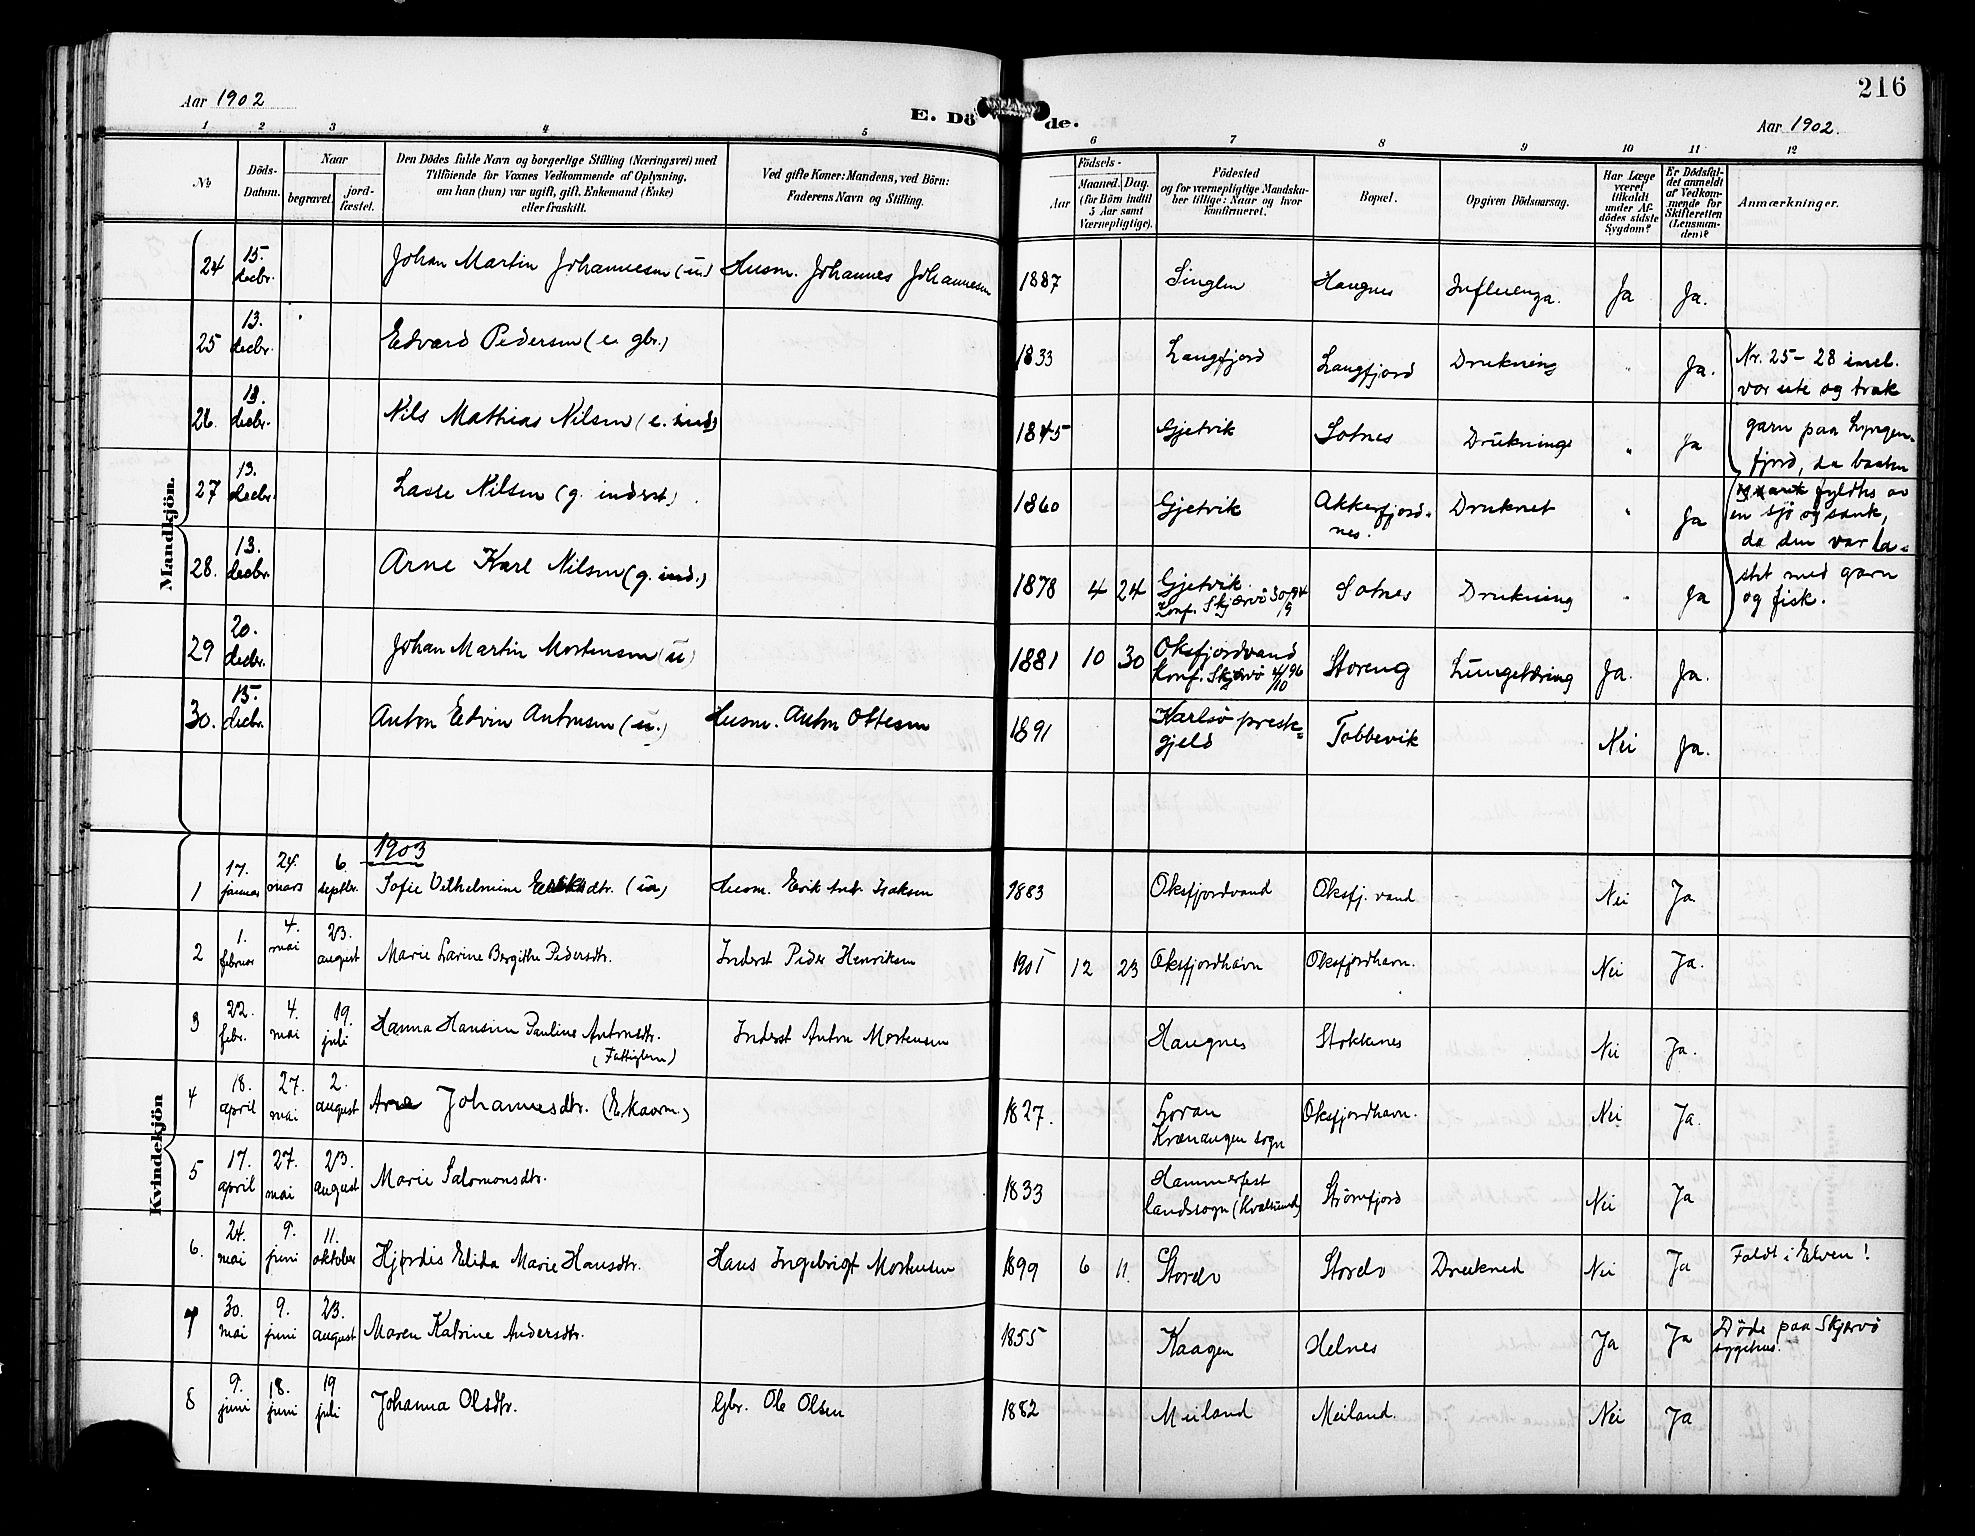 216
Aar 1902
E. Döde.
Aar 1902.
1 2 3 4 5 6 7 8 9 10 11 12
No
Döds-Datum.
Naar
begravet.
jord-fæstet.
Den Dödes fulde Navn og borgerlige Stilling (Næringsvei) med
Tilföiende for Voxnes Vedkommende af Oplysning,
om han (hun) var ugift, gift, Enkemand (Enke)
eller fraskilt.
Ved gifte Koner: Mandens, ved Börn:
Faderens Navn og Stilling.
Födsels-
Aar
Maaned. Dag.
(for Börn indtil
5 Aar samt
Værnepligtige).
Födested
og for værnepligtige Mandska-
ber tillige: Naar og hvor
konfirmeret.
Bopæl.
Opgiven Dödsaarsag.
Har Læge
været
tilkaldt
under Af-
dödes sidste
Sygdom?
Er Dödsfal-
det anmeldt
af Vedkom-
mende for
Skifteretten
(Lensman-
den)?
Anmærkninger.
Mandkjön.
24 15. decbr. Johan Martin Johannesen (u) Husm. Johannes Johannesen 1887 Singlen Haugnes Influenza. Ja Ja.
25 13. decbr. Edvard Pedersen (e gbr.) 1833 Langfjord Langfjord Drukning " Ja.
26. 13. decbr. Nils Mathias Nilsen (e. ind) 1845 Gjetvik Sotnes Drukning " Ja
27 13. decbr. Lasse Nilsen (g. inderst) 1860 Gjetvik Akkerfjord-
nes. Druknet " Ja
28. 13. decbr. Arne Karl Nilsen (g. ind.) 1878 4 24 Gjetvik.
Konf. Skjærvö 30/9 94 Sotnes Drukning " Ja
Nr. 25-28 incl.
var ute og trak
garn paa Lyngen-
fjord, da baaten
fyldtes av
en sjö og sank,
da den var la-
stet med garn
og fisk.
29 20. decbr. Johan Martin Mortensen (u) 1881 10 30 Oksfjordvand
Konf. Skjervö 4/10 96 Storeng Lungetæring Ja. Ja.
30. 15. decbr. Anton Edvin Antonsen (u.) Husm. Anton Ottesen 1891 Karlsö prest-
gjeld Tobbevik Nei Ja.
Kvindekjön
1903
1 17. januar 24. mars 6 septbr. Sofie Vilhelmine Eriksdtr. (u) Husm. Erik Ant. Isaksen 1883 Oksfjordvand Oksfj. vand Nei Ja
2 1. februar 4. mai 23. august Marie Larine Bergithe Pedersdtr. Inderst Peder Henriksen 1901 12 23 Oksfjordhavn Oksfjordhavn. Nei Ja.
3 22. febr. 4. mai 19. juli Hanna Hansine Pauline Antonsdtr.
(Fattiglem) Inderst Anton Mortensen Haugnes Stokknes Nei Ja.
4 18. april 27. mai 2. august Ane Johannesdtr. (E. Kaarm.) 1827. Loran
Kvænangen sogn Oksfjordhavn. Nei Ja.
5 17. april 27. mai 23. august Marie Salomonsdtr. 1833 Hammerfest
landssogn (Kvalsund) Strömfjord Nei Ja
6. 24. mai 9. juni 11. oktober Hjørdis Elida Marie Hansdtr. Hans Ingebrigt Mortensen 1899 6 11. Storelv Storelv Druknet Nei Ja Faldt i Elven!
7 30. mai 9. juni 23. august Maren Katrine Andersdtr. 1855 Kaagen Helnes Ja Ja Døde paa Skjærvö
sygehus.
8 9. juni 18. juni 19 juli Johanna Olsdtr. Gbr. Ole Olsen 1882 Meiland Meiland. Nei Ja